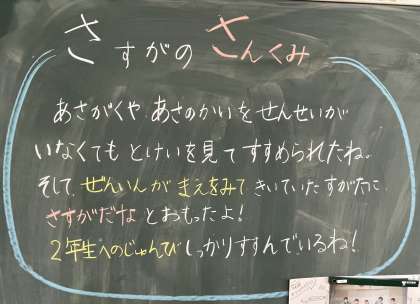 さすがの さんくみ
あさがくや、あさのかいをせんせいが
いなくても とけいを見て すすめられたね。
そして ぜんいんが まえをみて きいていたすがたに
さすがだな とおもったよ!
2年生へのじゅんび しっかりすすんでいるね!